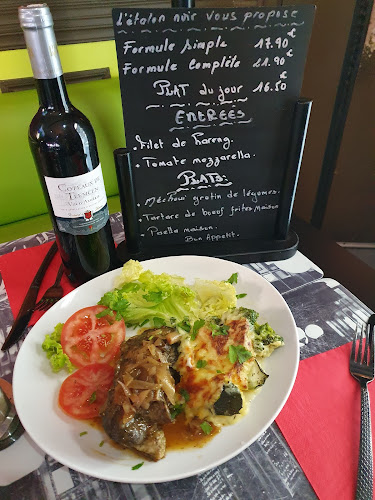 L'étalon noir vous propose
Formule Simple 17.90€
Formule Complète 21.90€
PLAT du jour 16.50€
ENTRÉES
. Filet de hareng.
. Tomate mozzarella.
PLATS:
. Méchoui gratin de légumes.
. Tartare de boeufs frites Maison
. Paella maison.
Bon Appétit.
COTEAUX DU